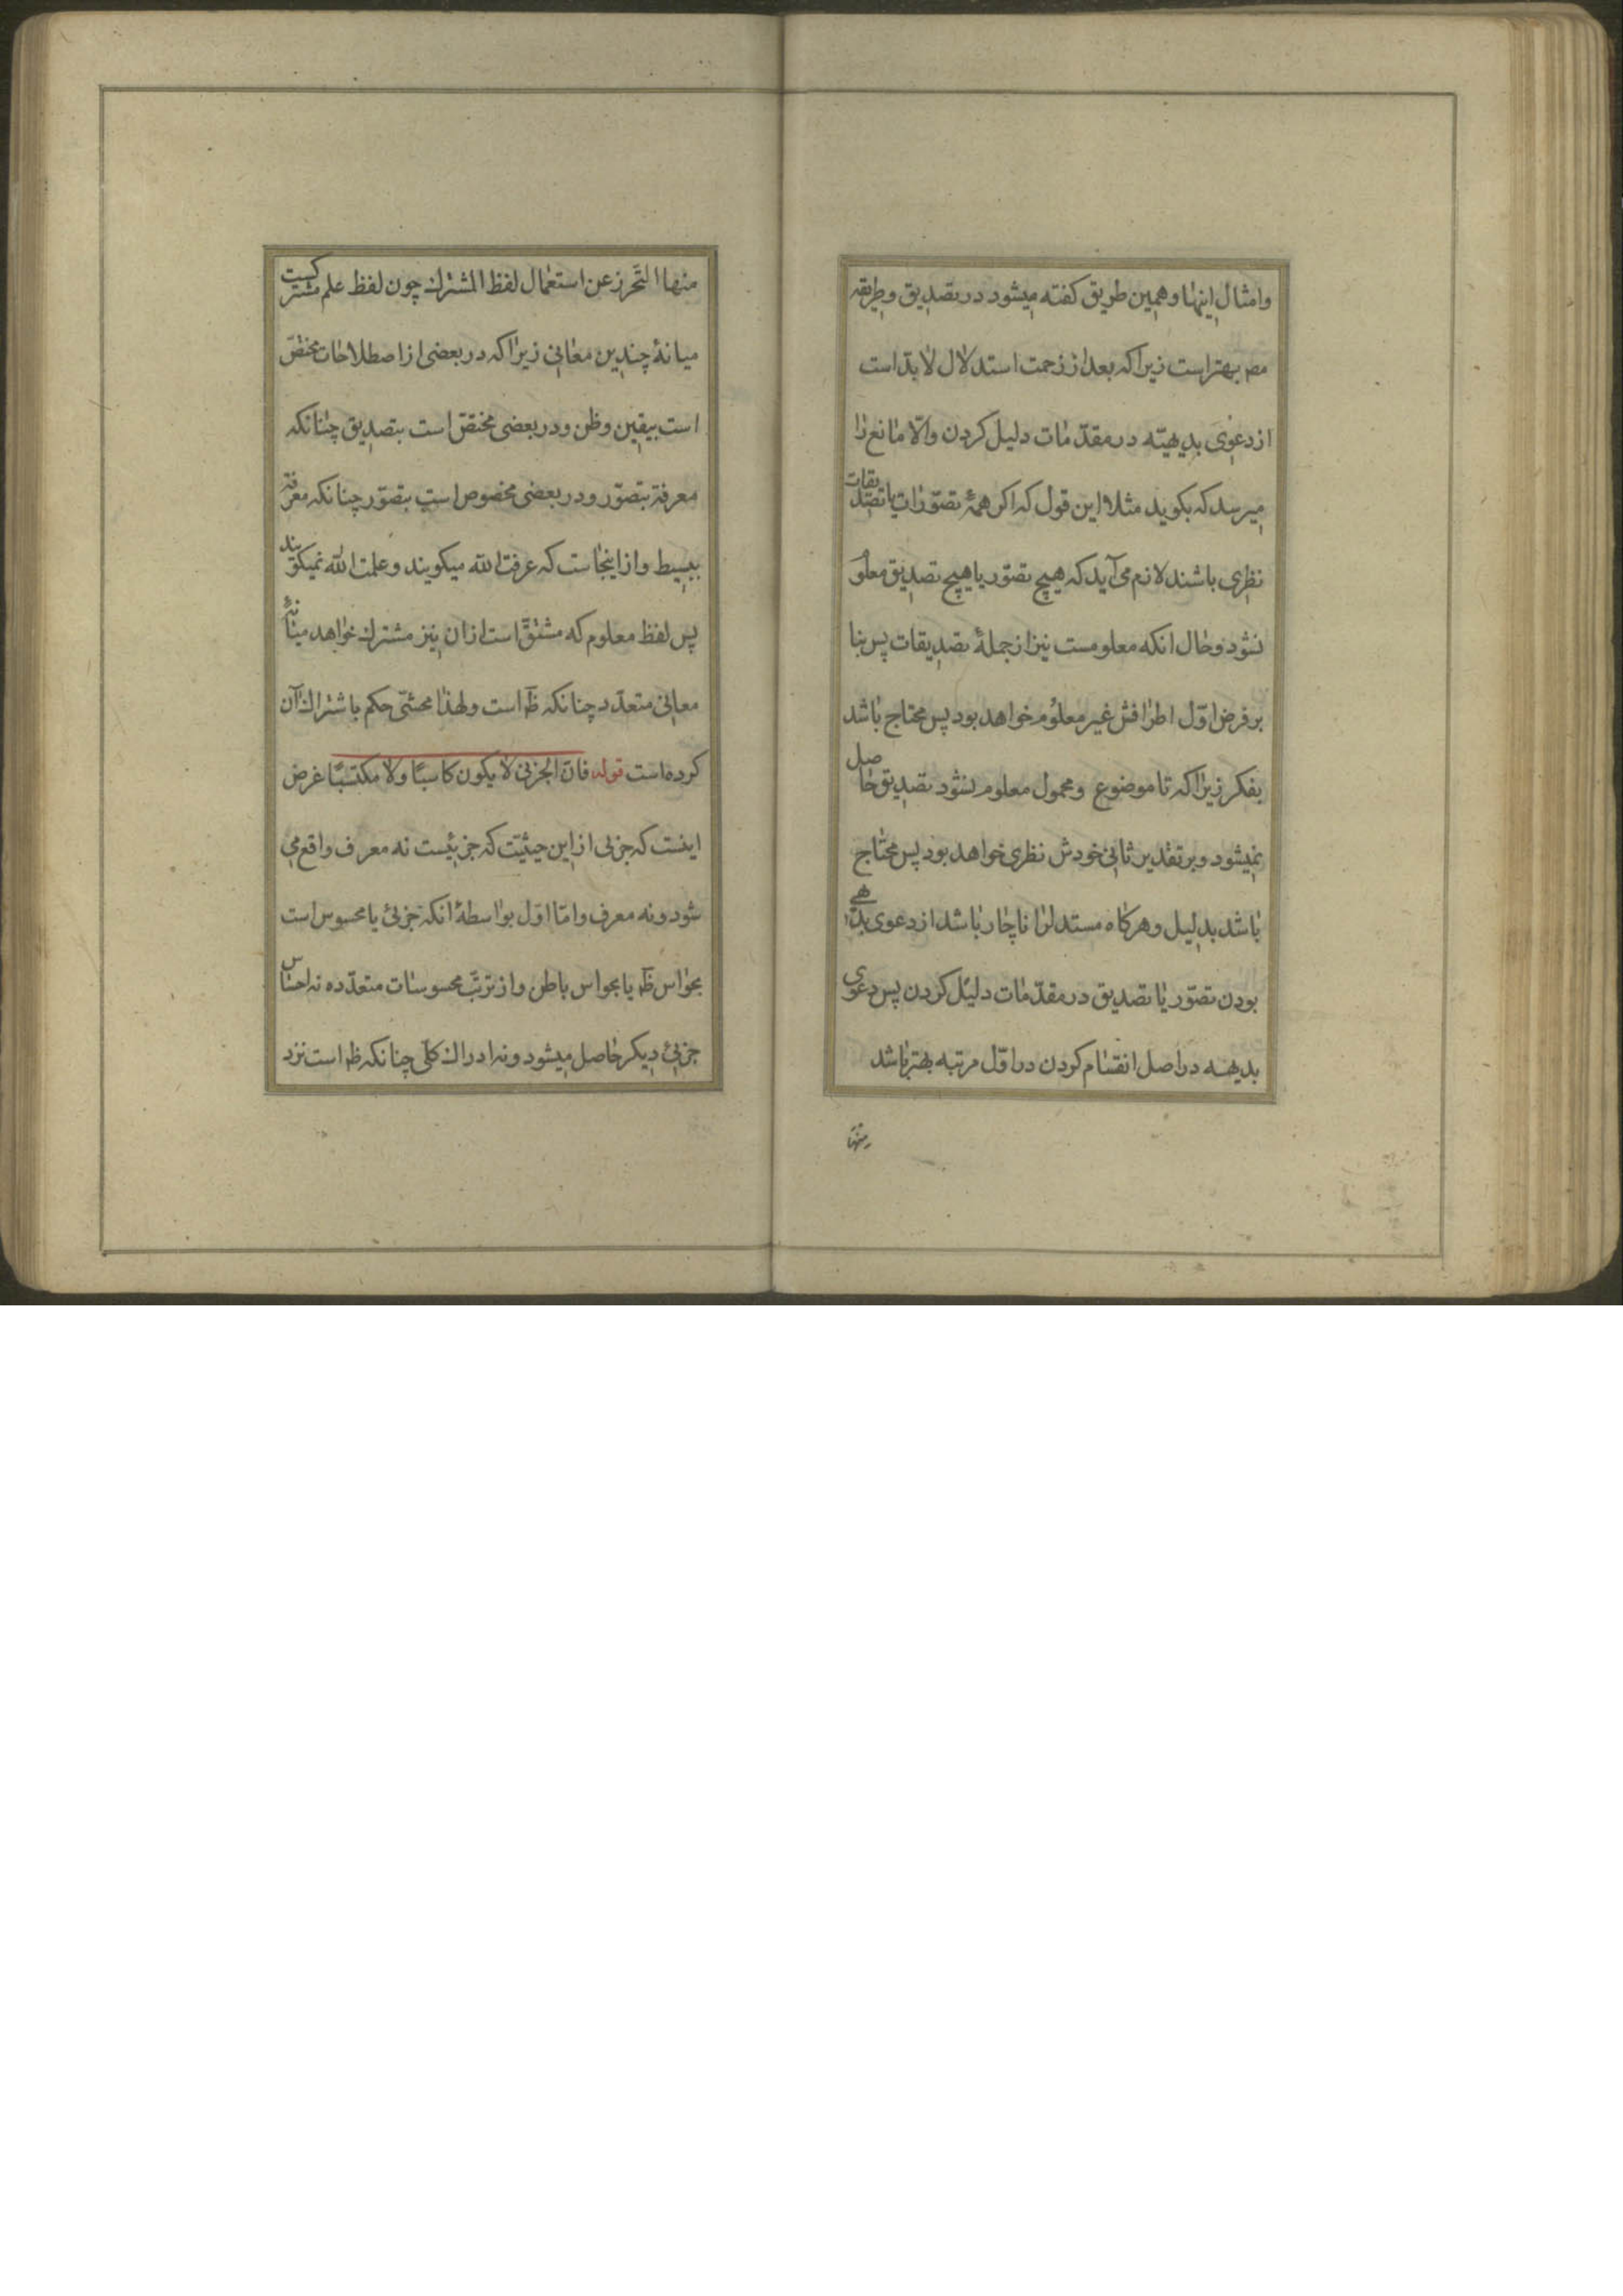 وامثال اینها و همین طریق کفته میشود در تصدیق و طریقه
مصر بهتر است زیرا که بعد از زحمت استدلال لابدّ است
از دعوی بدیهیّه در مقدّمات دلیل کردن والّا مانع را
میرسد که بکوید مثلا این قول که اکر همهٔ تصوّرات یا تصدیقات
نظری باشند لازم می آید که هیچ تصوّر یا هیچ تصدیق معلوم
نشود و حال انکه معلومست نیز از جملهٔ تصدیقات پس بنا
بر فرض اوّل اطرافش غیر معلوم خواهد بود پس محتاج باشد
بفکر زیرا که تا موضوع و محمول معلوم نشود تصدیق حاصل
نمیشود و بر تقدیر ثانی خودش نظری خواهد بود پس محتاج
باشد بدلیل و هرکاه مستدل را ناچار باشد از دعوی بدیهی
بودن تصوّر یا تصدیق در مقدّمات دلیل کردن پس دعوی
بدیهه در اصل انقسام کردن در اوّل مرتبه بهتر باشد
منها
منها التّحرز عن استعمال لفظ المشترك چون لفظ علم مشترکست
میانهٔ چندین معانی زیرا که در بعضی از اصطلاحات مختصّ
است بیقین و ظن و در بعضی مختصّ است بتصدیق چنانکه
معرفة بتصوّر و در بعضی مخصوص است بتصوّر چنانکه معرفة
ببسیط و از اینجاست که عرفت الله میکویند و علمت الله نمیکویند
پس لفظ معلوم که مشتقّ است از ان نیز مشترك خواهد میانهٔ
معانی متعدّد چنانکه ظ است و لهذا محشّی حکم باشتراك آن
کرده است قوله فانّ الجزئی لا یکون کاسبًا ولا مکتسبًا غرض
اینست که جزئی از این حیثیّت که جزئیست نه معرف واقع می
شود و نه معرف و امّا اوّل بواسطهٔ انکه جزئی یا محسوس است
بحواس ظ یا بحواس باطن و از ترتّب محسوسات متعدّده نه احساس
جزئی دیکر حاصل میشود و نه ادراك کلّی چنانکه ظ است نزد